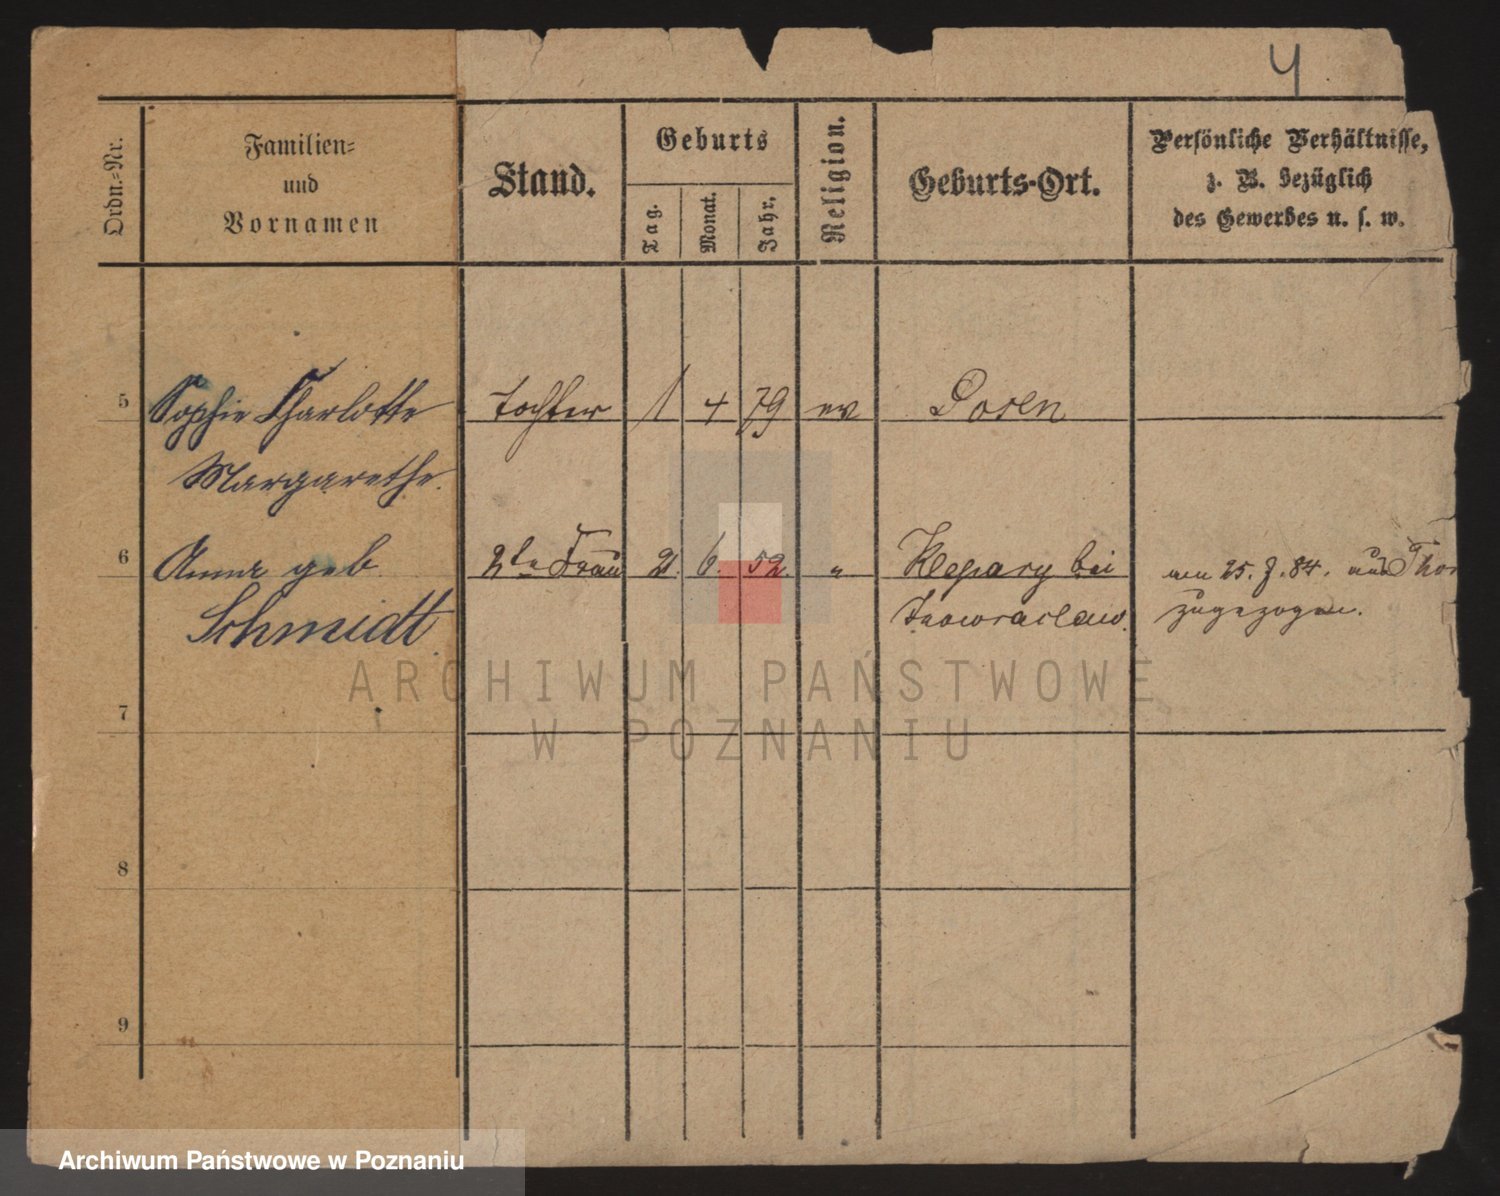 4
Ordn.-Nr.
Familien-
und
Vornamen
Stand.
Geburts
Tag.
Monat.
Jahr.
Religion.
Geburts-Ort.
Persönliche Verhältnisse,
z. B. bezüglich
des Gewerbes u. s. w.
5 Sophie Charlotte Tochter 1 4 79 ev Posen
Margarethe.
6 Anna geb 2te Frau 2. 6. 52. " bei 25. 84. aus Thor
Schmidt Inowraclaw. zugezogen.
7
8
9
ARCHIWUM PAŃSTWOWE
W POZNANIU
Archiwum Państwowe w Poznaniu